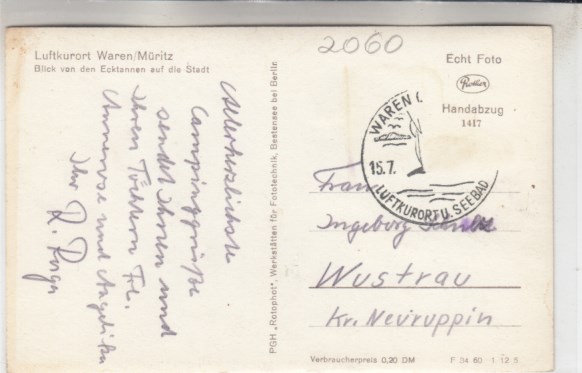 Luftkurort Waren/Müritz
Blick von den Ecktannen auf die Stadt
Allerherzlichste
Campinggrüße
sendet Ihnen und
Ihren Töchtern Frl.
Annerose und Angelika
Ihr R.
PGH „Rotophot", Werkstätten für Fototechnik, Bestensee bei Berlin
2060
Echt Foto
Handabzug
1417
WAREN (
15.7.
LUFTKURORT U. SEEBAD
Frau
Ingeborg
Wustrau
Kr. Neuruppin
Verbraucherpreis 0,20 DM
F 34 60 1 12 5